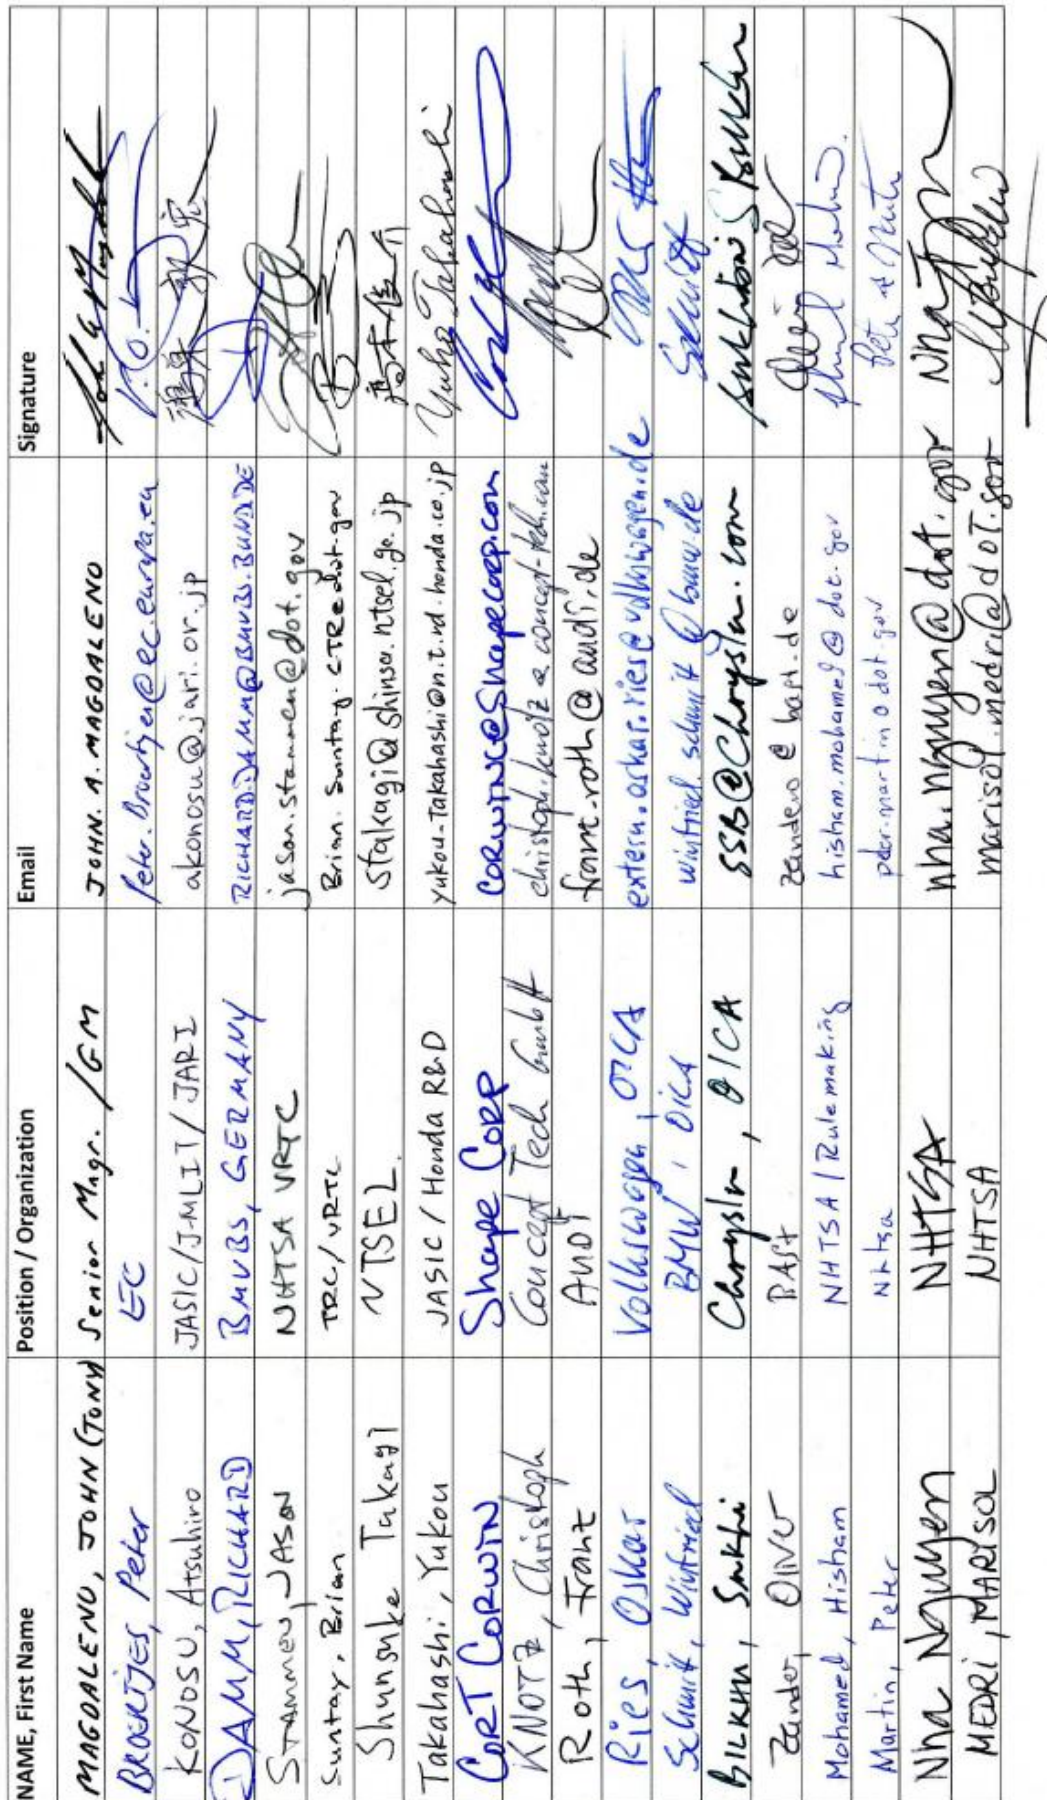 NAME, First Name Position / Organization Email Signature
MAGDALENO, JOHN (TONY) Senior Mngr. /GM JOHN. A. MAGDALENO
BROERTJES, Peter EC Peter.Broertjes@ec.europa.eu
KONOSU, Atsuhiro JASIC/J-MLIT/JARI akonosu@jari.or.jp
DAMM, RICHARD BMVBS, GERMANY RICHARD.DAMM@BMVBS.BUND.DE
STAMMEN, JASON NHTSA VRTC jason.stammen@dot.gov
Suntay, Brian TRC/VRTC Brian.Suntay.CTR@dot.gov
Shunsuke Takagi NTSEL stakagi@shinsa.ntsel.go.jp
Takahashi, Yukou JASIC/Honda R&D yukou-takahashi@n.t.rd.honda.co.jp Yuko Takahashi
CORT CORWIN Shape CORP CORWINC@Shapecorp.com
KNOTZ, Christoph Concept Tech GmbH christoph.knotz@concept-tech.com
Roth, Franz AUDI franz.roth@audi.de
Ries, Oskar Volkswagen, OICA extern.oskar.ries@volkswagen.de
Schmit, Winfried BMW, OICA winfried.schmit@bmw.de Schmit
BILKHU, Sukhi Chrysler, OICA SSB@Chrysler.com
Zander, Oliver BASt zander@bast.de
Mohamed, Hisham NHTSA/Rulemaking hisham.mohamed@dot.gov
Martin, Peter Nhtsa peter.martin@dot.gov
Nha Nguyen NHTSA nha.nguyen@dot.gov
MEDRI, MARISOL NHTSA marisol.medri@dot.gov